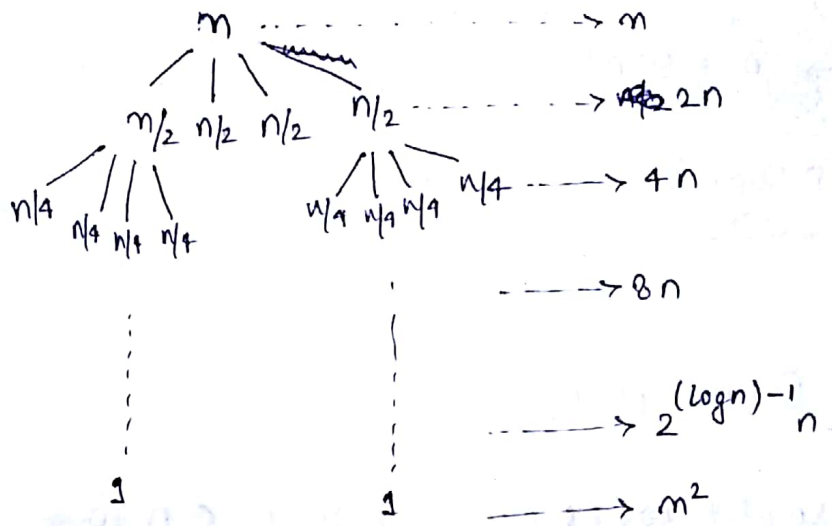 n -----> n
n/2 n/2 n/2 n/2 -----> 2n
n/4 n/4 n/4 n/4 n/4 n/4 n/4 n/4 -----> 4n
-----> 8n
-----> 2^(logn)-1 n
1 1 -----> n²